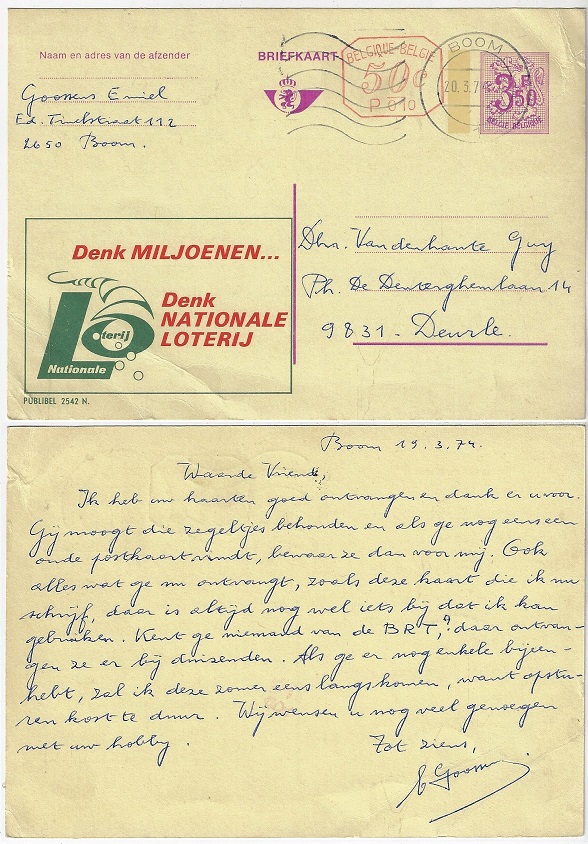 Naam en adres van de afzender
BRIEFKAART
BELGIQUE-BELGIE
50c
P 010
BOOM
20.3.74
3F50
BELGIE BELGIQUE
Goossens Emiel
Ed. Tinelstraat 112
2650 Boom.
Dhr. Vanderhaute Guy
Ph. De Denterghemlaan 14
9831 - Deurle.
Denk MILJOENEN...
Denk
NATIONALE
LOTERIJ
Loterij
Nationale
PUBLIBEL 2542 N.
Boom 19.3.74.
Waarde Vriend,
Ik heb uw kaarten goed ontvangen en dank er u voor.
Gij moogt die zegeltjes behouden en als ge nog eens een
oude postkaart vindt, bewaar ze dan voor mij. Ook
alles wat ge nu ontvangt, zoals deze kaart die ik nu
schrijf, daar is altijd nog wel iets bij dat ik kan
gebruiken. Kent ge niemand van de BRT,? daar ontvan-
gen ze er bij duizenden. Als ge er nog enkele bijeen-
hebt, zal ik deze zomer eens langskomen, want opstu-
ren kost te duur. Wij wensen u nog veel genoegen
met uw hobby.
Tot ziens,
E Goossens